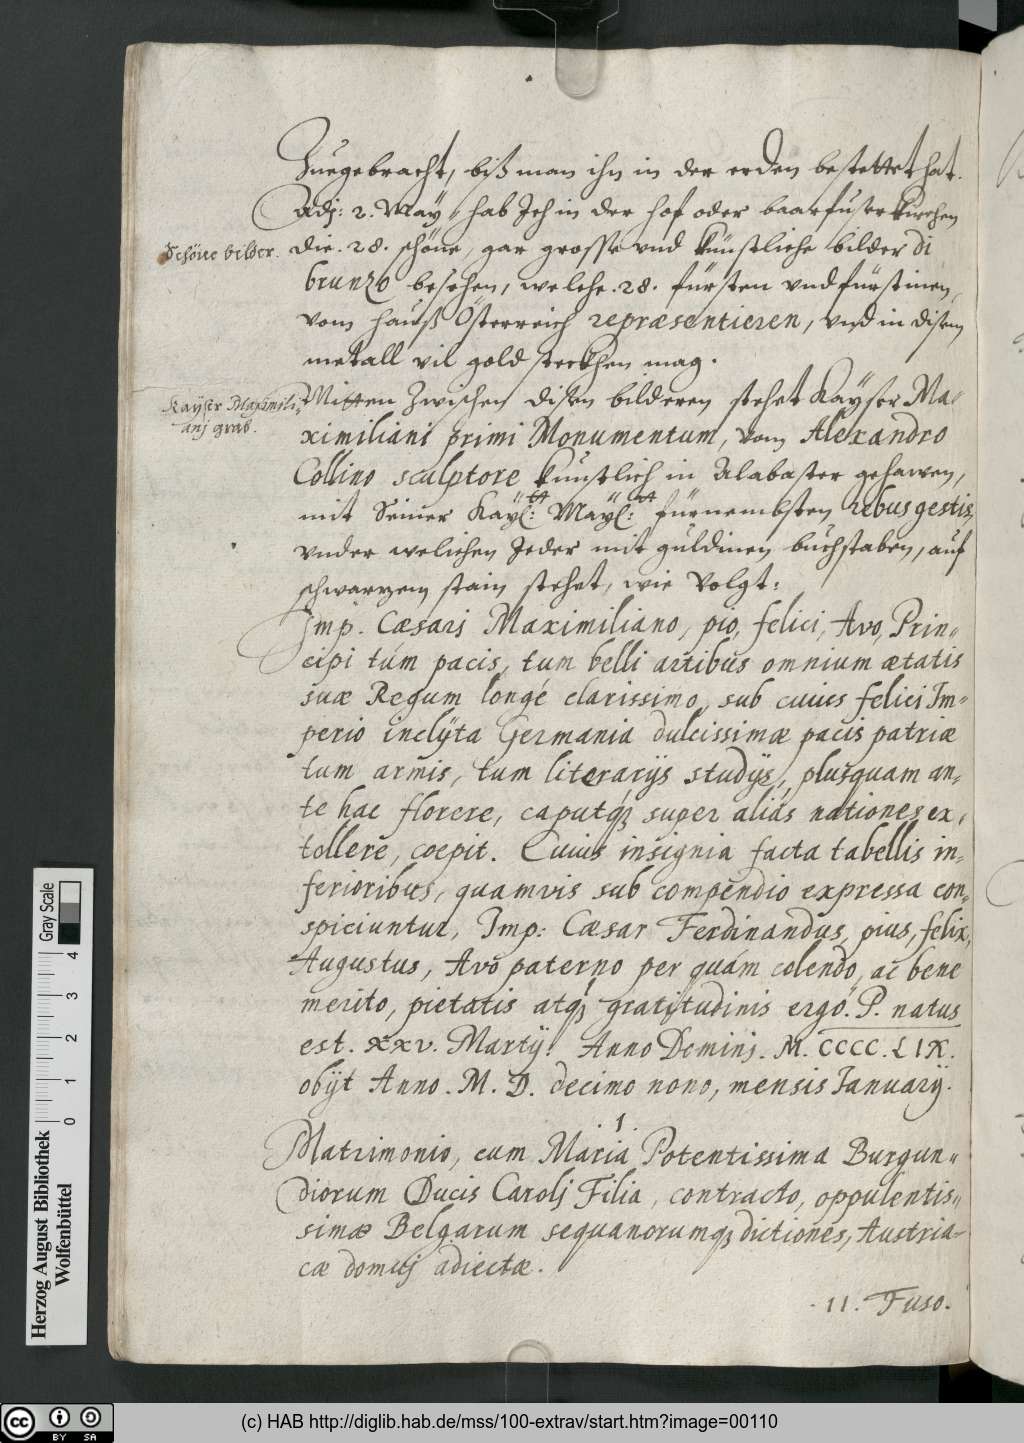 Zuegebracht, biß man ihn in der erden bestettet hat.
Adj: 2. May, hab Ich in der hof oder baarfuser kirchen
Schöne bilder.
die .28. schöne, gar grosse vnd künstliche bilder di
brunzo besehen, welche .28. fürsten vnd fürstinen,
vom hauß Österreich repræsentieren, vnd in disem
metall vil gold steckhen mag.
Kayser Maximili-
anj grab.
Mitten Zwischen disen bilderen stehet Kayser Ma-
ximiliani primi Monumentum, vom Alexandro
Collino sculptore künstlich in Alabaster gehawen,
mit Seiner Kayl: Mayl: fürnembsten rebus gestis,
vnder welichen Jeder mit guldinen buchstaben, auf
schwarzem stain stehet, wie volgt:
Imp. Cæsarj Maximiliano, pio, felici, Avo, Prin-
cipi tùm pacis, tum belli artibus omnium ætatis
suæ Regum longé clarissimo, sub cuius felici Im-
perio inclÿta Germania dulcissimæ pacis patriæ
tum armis, tum literarijs studijs, plusquam an-
te hac florere, caputq́ super aliás nationes ex-
tollere, coepit. Cuius insignia facta tabellis in-
ferioribus, quamvis sub compendio expressa con-
spiciuntur, Imp: Cæsar Ferdinandus, pius, felix,
Augustus, Avo paterno per quam colendo, ac bene
merito, pietatis atq́ gratitudinis ergó. P. natus
est. XXV. Martÿ. Anno Dominj. M. CCCC. LIX.
obÿt Anno. M. D. decimo nono, mensis Ianuarÿ.
.1.
Matrimonio, cum Maria Potentissima Burgun-
diorum Ducis Carolj Filia, contracto, oppulentis-
simæ Belgarum sequanorumq́ dictiones, Austria-
cæ domuj adiectæ.
.11. Fuso.
Herzog August Bibliothek
Wolfenbüttel
0 1 2 3 4
Gray Scale
cc BY SA
(c) HAB http://diglib.hab.de/mss/100-extrav/start.htm?image=00110